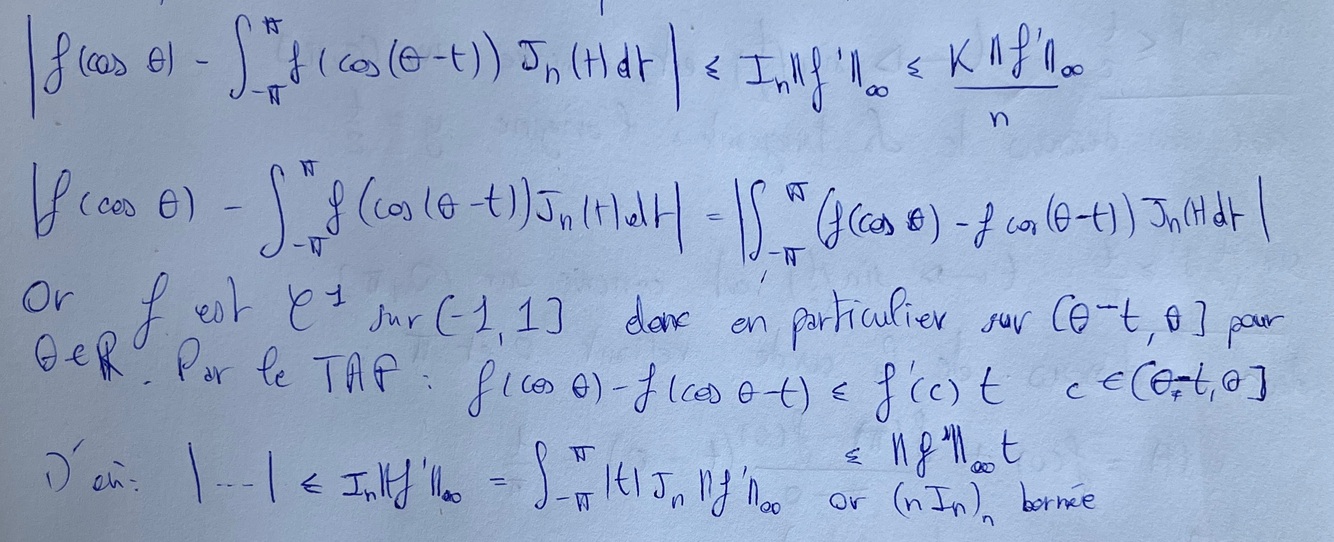 |f(cos θ) - ∫_{-π}^{π} f(cos(θ-t)) J_n(t)dt| ≤ I_n ‖f'‖_∞ ≤ K‖f'‖_∞ / n
|f(cos θ) - ∫_{-π}^{π} f(cos(θ-t)) J_n(t)dt| = |∫_{-π}^{π} (f(cos θ) - f cos(θ-t)) J_n(t)dt|
Or f est C^1 sur [-1,1] donc en particulier sur [θ-t, θ] pour
θ∈ℝ. Par le TAF : f(cos θ) - f(cos θ-t) ≤ f'(c) t c ∈ [θ-t, θ]
≤ ‖f'‖_∞ t
D'où: |---| ≤ I_n‖f'‖_∞ = ∫_{-π}^{π} |t| J_n ‖f'‖_∞ or (nI_n)_n bornée